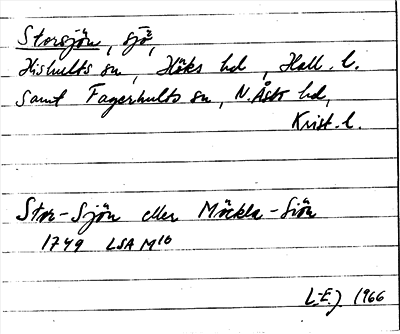 Storsjön, sjö,
Hishults sn, Höks hd, Hall. l.
samt Fagerhults sn, N. Åsbo hd,
Krist. l.
Stor-Sjön eller Möckla-Siön
1749 LSA M10
L-E.J. 1966